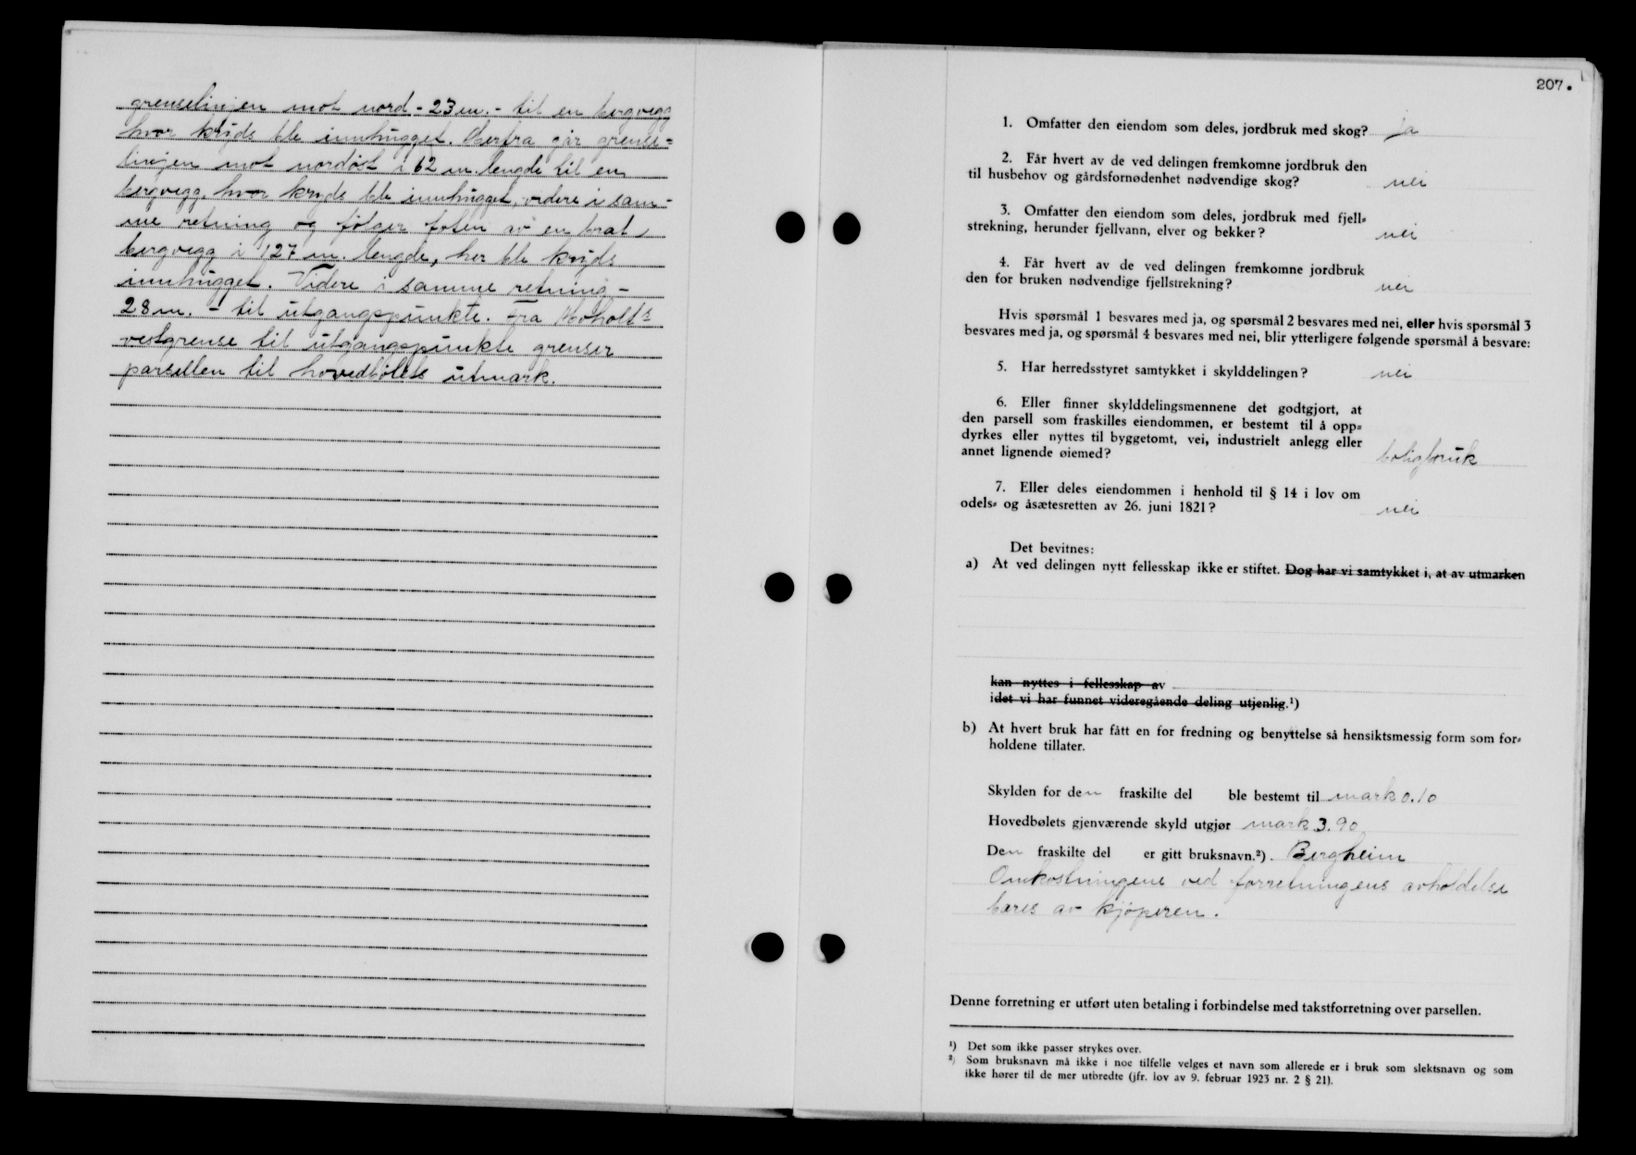 grenselinjen mot nord - 23 m. - til en bergvegg
hvor kryds ble innhugget. Herfra går grense=
linjen mot nordöst i 62 m. lengde til en
bergvegg, hvor kryds ble innhugget, videre i sam-
me retning og følger foten av en brat
bergvegg i 127 m. lengde, her ble kryds
innhugget. Videre i samme retning -
28 m. - til utgangspunkte. Fra
vestgrense til utgangspunkte grenser
parsellen til hovedbölets utmark.
207.
1. Omfatter den eiendom som deles, jordbruk med skog? ja
2. Får hvert av de ved delingen fremkomne jordbruk den
til husbehov og gårdsfornødenhet nødvendige skog? nei
3. Omfatter den eiendom som deles, jordbruk med fjell=
strekning, herunder fjellvann, elver og bekker? nei
4. Får hvert av de ved delingen fremkomne jordbruk
den for bruken nødvendige fjellstrekning? nei
Hvis spørsmål 1 besvares med ja, og spørsmål 2 besvares med nei, eller hvis spørsmål 3
besvares med ja, og spørsmål 4 besvares med nei, blir ytterligere følgende spørsmål å besvare:
5. Har herredsstyret samtykket i skylddelingen? nei
6. Eller finner skylddelingsmennene det godtgjort, at
den parsell som fraskilles eiendommen, er bestemt til å opp=
dyrkes eller nyttes til byggetomt, vei, industrielt anlegg eller
annet lignende øiemed? boligbruk
7. Eller deles eiendommen i henhold til § 14 i lov om
odels= og åsætesretten av 26. juni 1821? nei
Det bevitnes:
a) At ved delingen nytt fellesskap ikke er stiftet. Dog har vi samtykket i, at av utmarken
kan nyttes i fellesskap av
idet vi har funnet videregående deling utjenlig.¹)
b) At hvert bruk har fått en for fredning og benyttelse så hensiktsmessig form som for=
holdene tillater.
Skylden for den fraskilte del ble bestemt til mark 0.10
Hovedbølets gjenværende skyld utgjør mark 3.90
Den fraskilte del er gitt bruksnavn.²) Bergheim
Omkostningene ved forretningens avholdelse
bæres av kjøperen.
Denne forretning er utført uten betaling i forbindelse med takstforretning over parsellen.
¹) Det som ikke passer strykes over.
²) Som bruksnavn må ikke i noe tilfelle velges et navn som allerede er i bruk som slektsnavn og som
ikke hører til de mer utbredte (jfr. lov av 9. februar 1923 nr. 2 § 21).